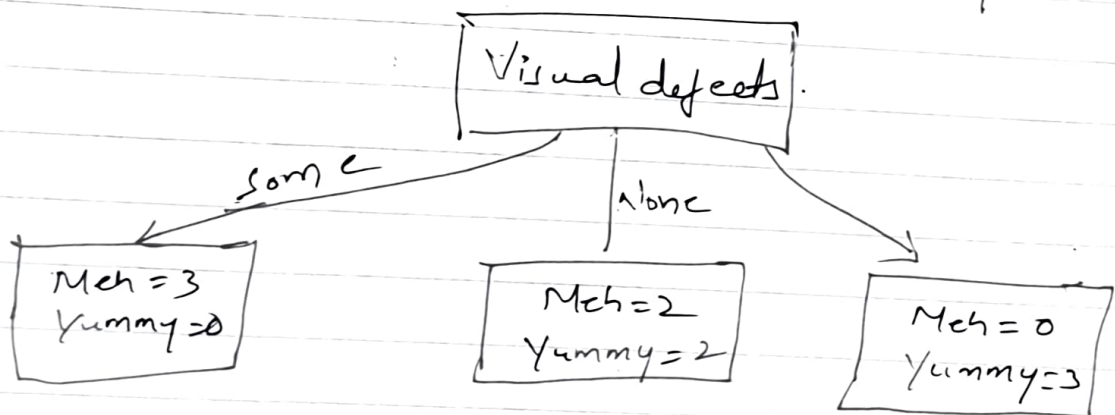 Visual defects.
some
None
Meh = 3
Yummy = 0
Meh = 2
Yummy = 2
Meh = 0
Yummy = 3